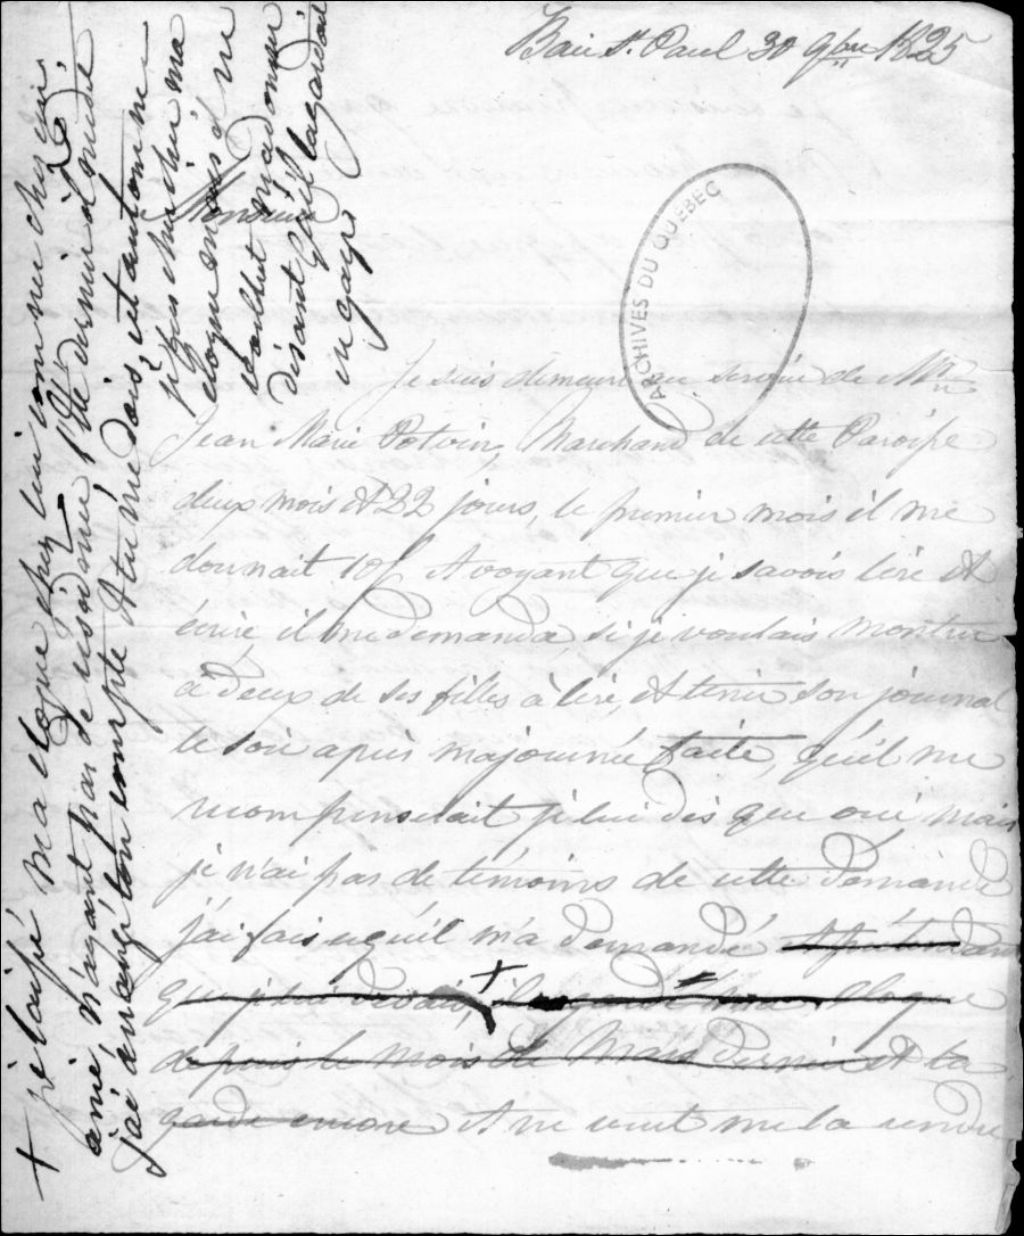 Baie St. Paul 30 9bre 1825
Monsieur
Je suis demeuré au service de Mr
Jean Marie Potvin, Marchand de cette Paroisse
deux mois et 22 jours, le premier mois il me
donnait 10f et voyant que je savois lire et
écrire il me demanda, si je voulais montrer
a deux de ses filles à lire, et tenir son journal
le soir apres majournée faite, qu'il me
recompenserait je lui dis que oui mais
je n'ai pas de témoins de cette demande
j'ai fais ce qu'il m'a demandé et prétendant
que je lui devais, il a gardé ma cloque
depuis le mois de Mars dernier et la
garde encore et ne veut me la rendre
+ je laissé ma cloque chez lui comme chez un
ami, n'ayant pas de besoin, l'été dernier il me dit
j'ai arrangé ton compte et tu me dois, cet automne
je fus cherché ma
cloque mais il ne
voulut me donner
disant qu'il la gardait
en gage
ARCHIVES DU QUÉBEC